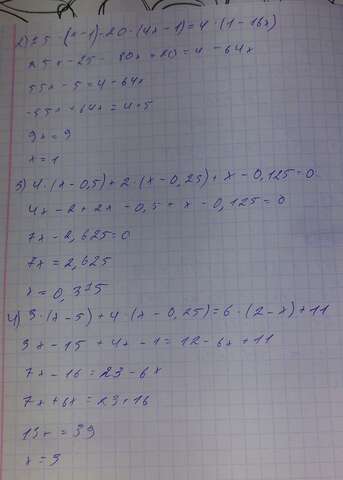 2) 25 · (x-1) - 20 · (4x-1) = 4 · (1-16x)
25x - 25 - 80x + 20 = 4 - 64x
55x - 5 = 4 - 64x
-55x + 64x = 4+5
9x = 9
x = 1
3) 4 · (x-0,5) + 2 · (x-0,25) + x - 0,125 = 0
4x - 2 + 2x - 0,5 + x - 0,125 = 0
7x - 2,625 = 0
7x = 2,625
x = 0,375
4) 3 · (x-5) + 4 · (x-0,25) = 6 · (2-x) + 11
3x - 15 + 4x - 1 = 12 - 6x + 11
7x - 16 = 23 - 6x
7x + 6x = 23 + 16
13x = 39
x = 3